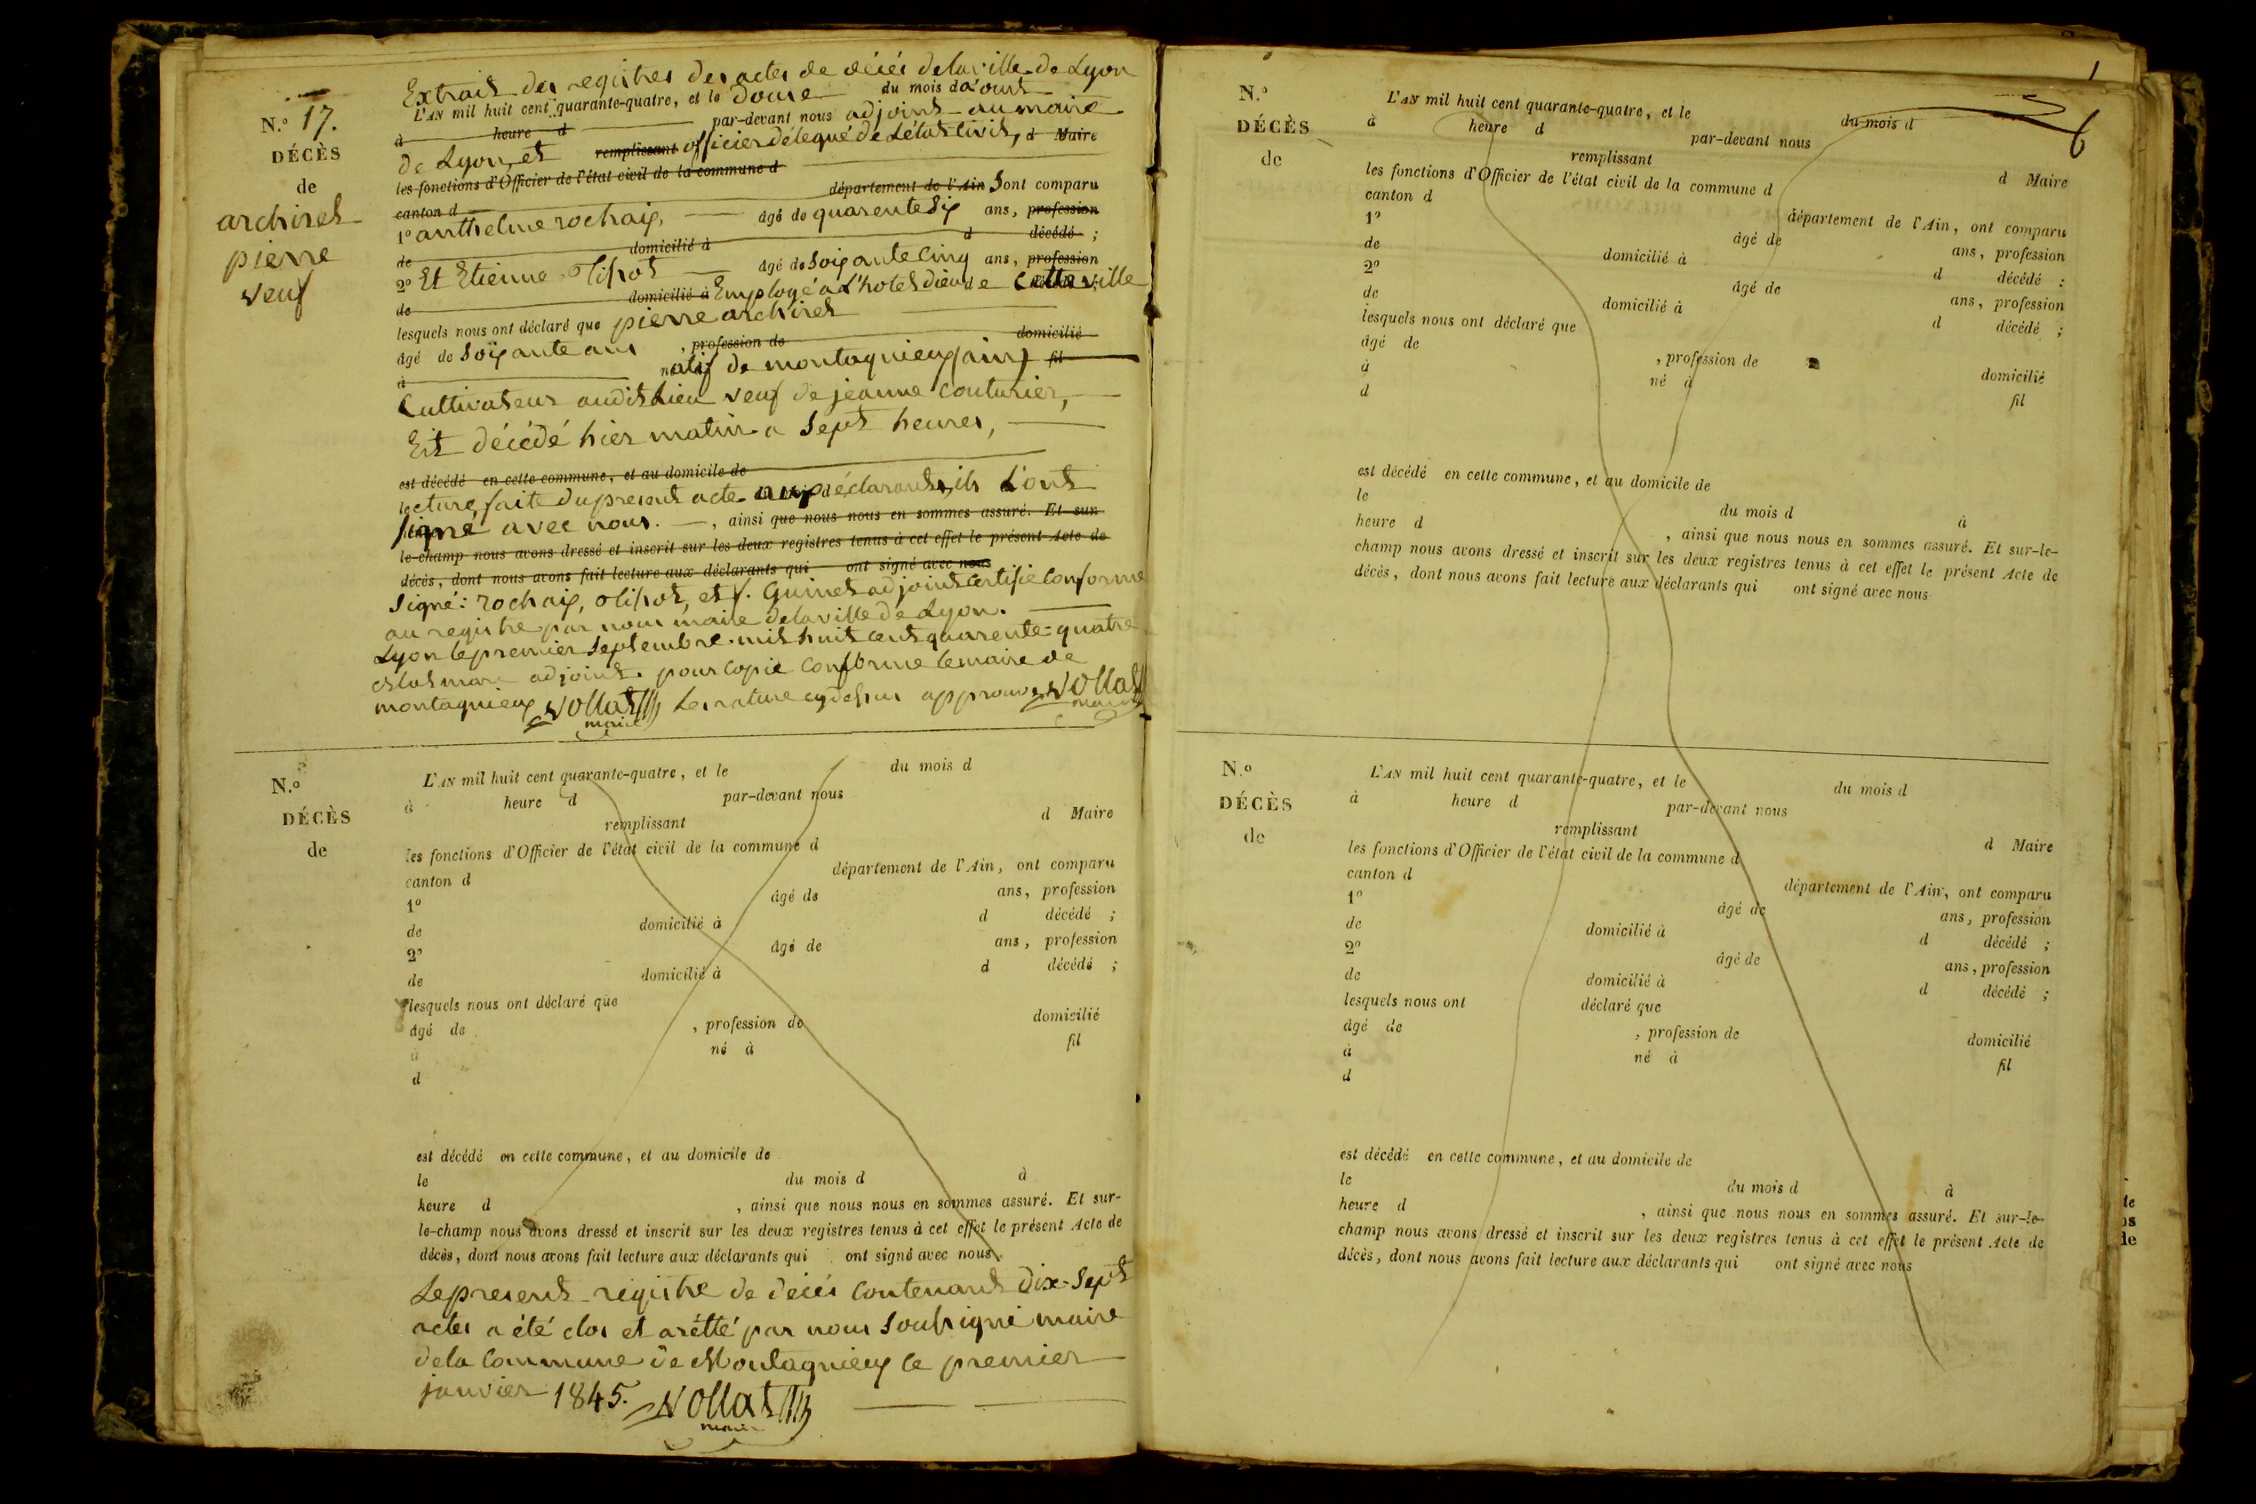 N.º 17.
DÉCÈS
de
archiret
pierre
veuf
Extrait des registres des actes de décés de la ville de Lyon
L'AN mil huit cent quarante-quatre, et le douse du mois d'aout
à heure d par-devant nous adjoint au maire
de Lyon, et remplissant officier délegué de L'état civil, d Maire
les fonctions d'Officier de l'état civil de la commune d
canton d département de l'Ain Sont comparu
1º anthelme rochaix, âgé de quarente Six ans, profession
de domicilié à d décédé ;
2º Et Etienne âgé de Soixante Cinq ans, profession
de domicilié à Employé a L'hotel dieu de Cette ville
lesquels nous ont déclaré que pierre archiret
âgé de Soixante ans , profession de domicilié
à natif de montagnieux (ain) fil
Cultivateur audit Lieu veuf de jeanne couturier,
Est décédé hier matin a Sept heures,
est décédé en cette commune, et au domicile de
lecture faite du present acte aux déclarants, ils L'ont
signé avec nous. , ainsi que nous nous en sommes assuré. Et sur
le-champ nous avons dressé et inscrit sur les deux registres tenus à cet effet le présent Acte de
décès, dont nous avons fait lecture aux déclarants qui ont signé avec nous
Signé: rochaix, et f. Guinet adjoint Certifié Conforme
au registre par nous maire de la ville de Lyon.
Lyon le premier Septembre mil huit cent quarente-quatre
adjoint. pour Copie Conforme le maire de
montagnieux Vollat approuvé Vollat
maire maire
N.º
DÉCÈS
de
L'AN mil huit cent quarante-quatre, et le du mois d
à heure d par-devant nous
remplissant d Maire
les fonctions d'Officier de l'état civil de la commune d
canton d département de l'Ain, ont comparu
1º âgé de ans, profession
de domicilié à d décédé ;
2º âgé de ans, profession
de domicilié à d décédé ;
lesquels nous ont déclaré que
âgé de , profession de domicilié
à né à fil
d
est décédé en cette commune, et au domicile de
le du mois d à
heure d , ainsi que nous nous en sommes assuré. Et sur-
le-champ nous avons dressé et inscrit sur les deux registres tenus à cet effet le présent Acte de
décès, dont nous avons fait lecture aux déclarants qui ont signé avec nous.
Le present registre de décés Contenant Dix-Sept
actes a été clos et arétté par nous Soussigné maire
de la Commune de Montagnieux le premier
janvier 1845. Vollat
maire
6
N.º
DÉCÈS
de
L'AN mil huit cent quarante-quatre, et le du mois d
à heure d par-devant nous
remplissant d Maire
les fonctions d'Officier de l'état civil de la commune d
canton d département de l'Ain, ont comparu
1º âgé de ans, profession
de domicilié à d décédé ;
2º âgé de ans, profession
de domicilié à d décédé ;
lesquels nous ont déclaré que
âgé de , profession de domicilié
à né à fil
d
est décédé en cette commune, et au domicile de
le du mois d à
heure d , ainsi que nous nous en sommes assuré. Et sur-le-
champ nous avons dressé et inscrit sur les deux registres tenus à cet effet le présent Acte de
décès, dont nous avons fait lecture aux déclarants qui ont signé avec nous
N.º
DÉCÈS
de
L'AN mil huit cent quarante-quatre, et le du mois d
à heure d par-devant nous
remplissant d Maire
les fonctions d'Officier de l'état civil de la commune d
canton d département de l'Ain, ont comparu
1º âgé de ans, profession
de domicilié à d décédé ;
2º âgé de ans, profession
de domicilié à d décédé ;
lesquels nous ont déclaré que
âgé de , profession de domicilié
à né à fil
d
est décédé en cette commune, et au domicile de
le du mois d à
heure d , ainsi que nous nous en sommes assuré. Et sur-le-
champ nous avons dressé et inscrit sur les deux registres tenus à cet effet le présent Acte de
décès, dont nous avons fait lecture aux déclarants qui ont signé avec nous